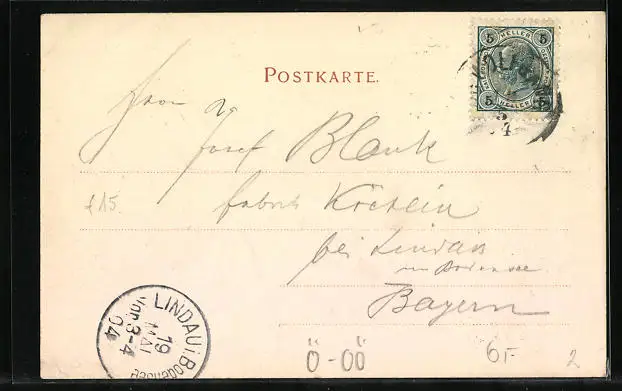 5 HELLER 5
5 HELLER 5
POSTKARTE.
Herrn
Josef Blank
£15
Fabrik Köchlin
bei Lindau
am Bodensee
Bayern
LINDAU i. Bodensee
19 MAI
Vor. 3-4
04
Ö-OÖ
6.-
2